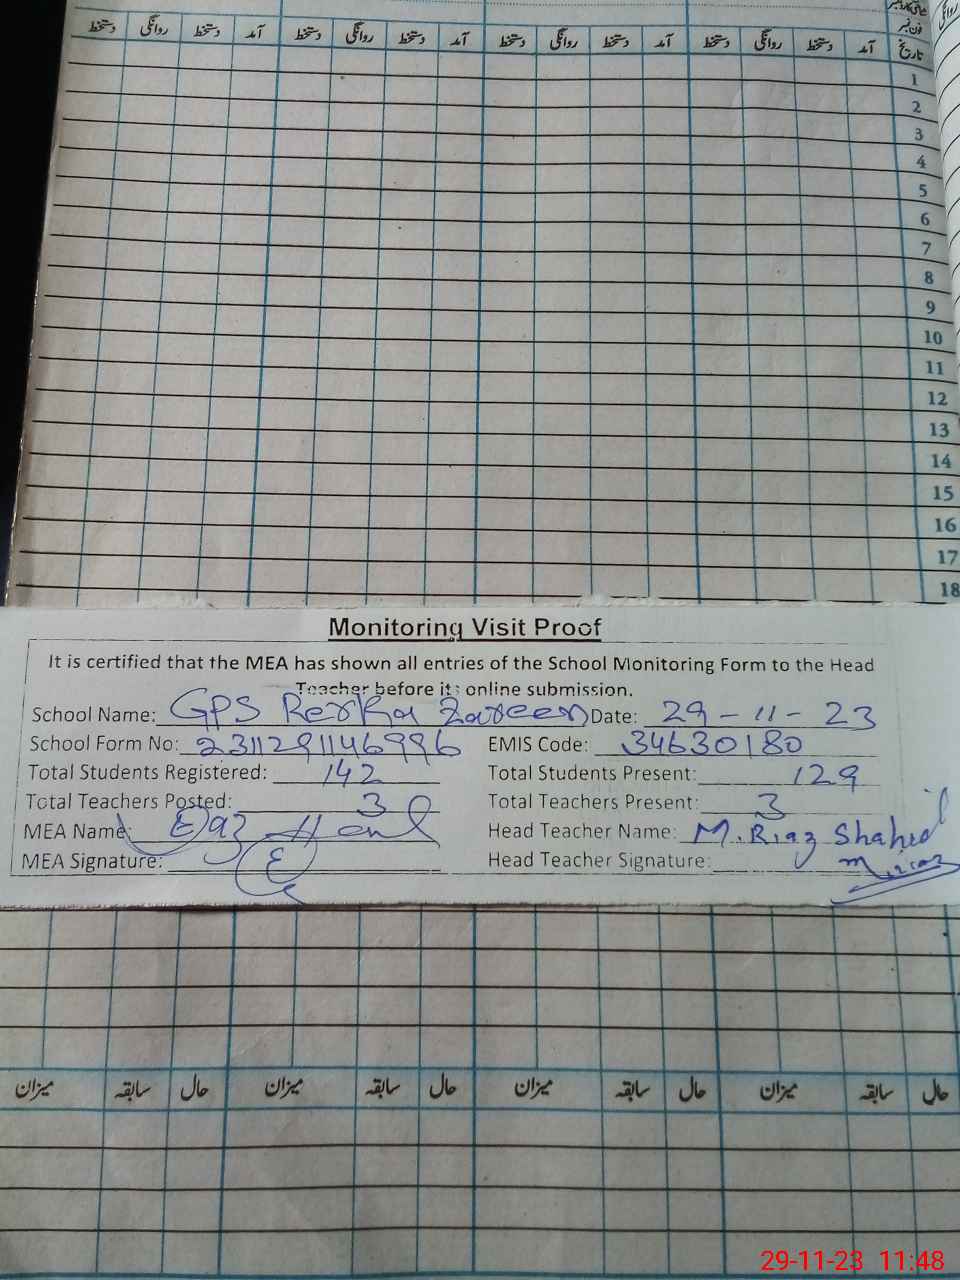 دستخط روانگی دستخط آمد دستخط روانگی دستخط آمد دستخط روانگی دستخط آمد دستخط روانگی دستخط آمد تاریخ
فون نمبر
1
2
3
4
5
6
7
8
9
10
11
12
13
14
15
16
17
18
Monitoring Visit Proof
It is certified that the MEA has shown all entries of the School Monitoring Form to the Head
Teacher before its online submission.
School Name: GPS Rerka Zareen Date: 29-11-23
School Form No: 2311291146996 EMIS Code: 34630180
Total Students Registered: 142 Total Students Present: 129
Total Teachers Posted: 3 Total Teachers Present: 3
MEA Name: Head Teacher Name: M. Riaz Shahid
MEA Signature: Head Teacher Signature: M. riaz
میزان سابقہ حال میزان سابقہ حال میزان سابقہ حال میزان سابقہ حال
29-11-23 11:48